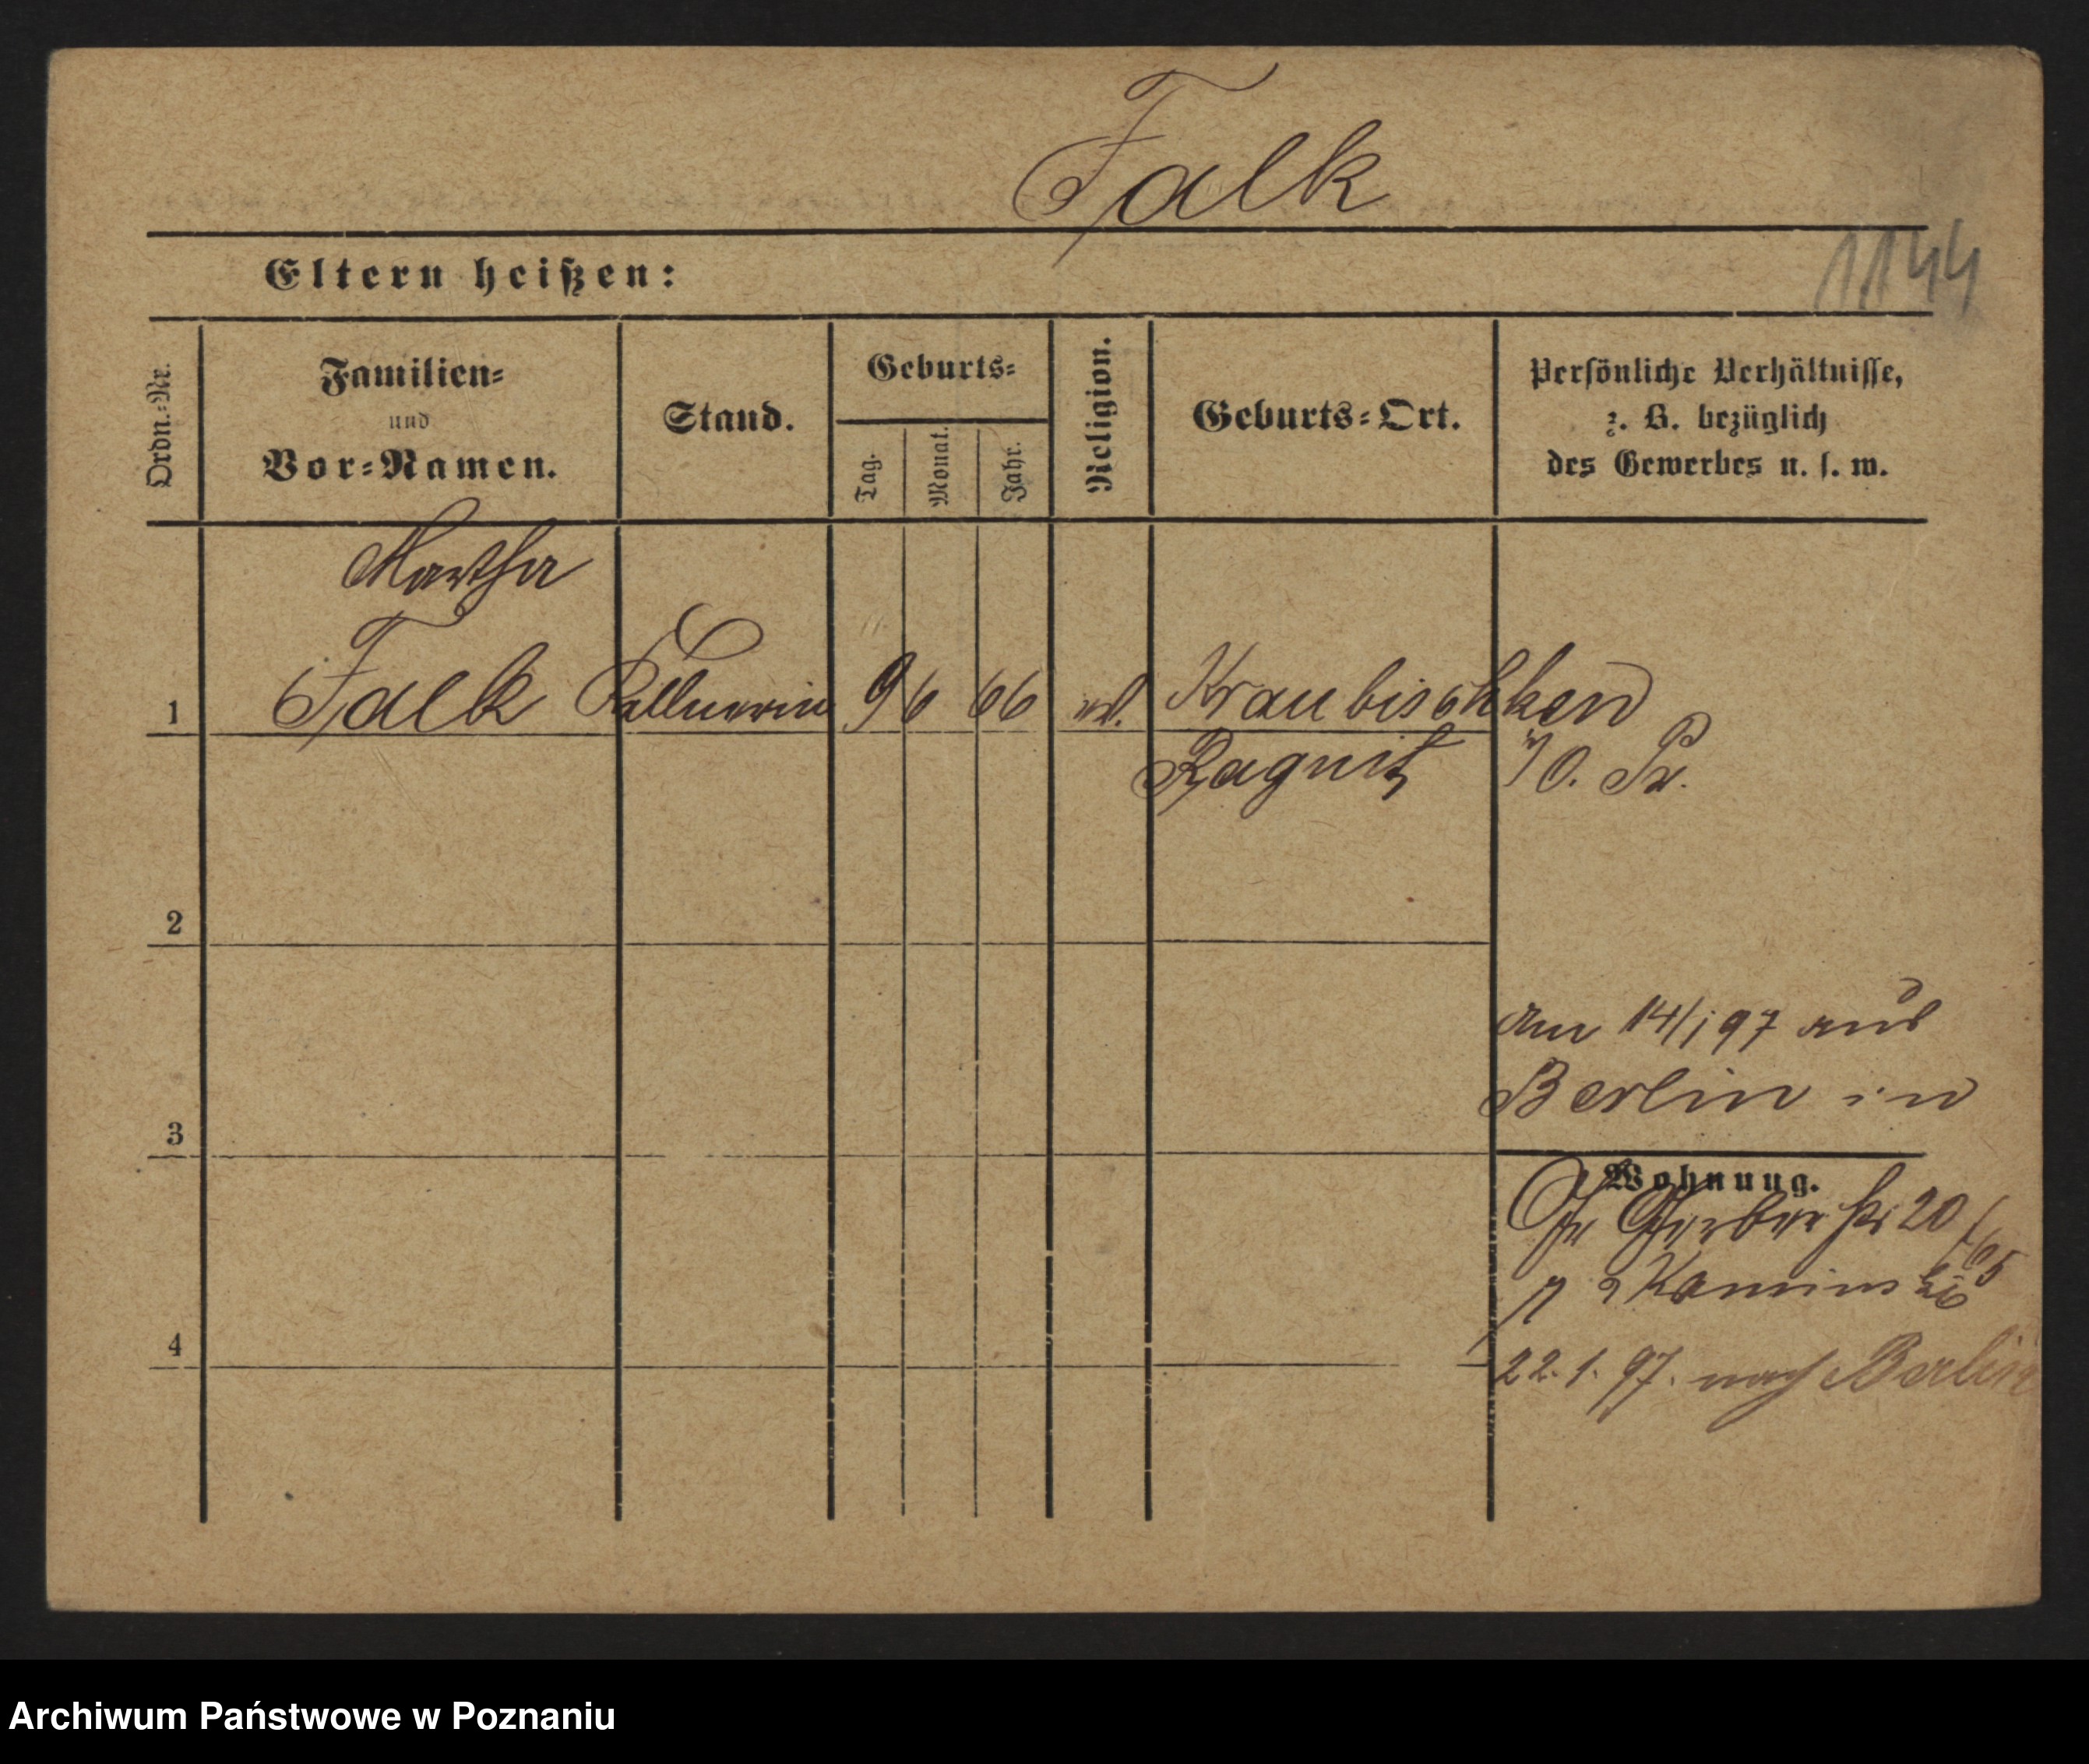 Falk
1144
Eltern heißen:
Ordn.-Nr.
Familien-
und
Vor-Namen.
Stand.
Geburts-
Tag.
Monat.
Jahr.
Religion.
Geburts-Ort.
Persönliche Verhältnisse,
z. B. bezüglich
des Gewerbes u. s. w.
Martha
1 Falk Kellnerin 9 6 66 Kraubischken
Ragnit O. Pr.
2
am 14/1 97 aus
Berlin in
3
Wohnung.
Gr Gerber str 20
Kaminski
4
22. 1. 97. nach Berlin
Archiwum Państwowe w Poznaniu